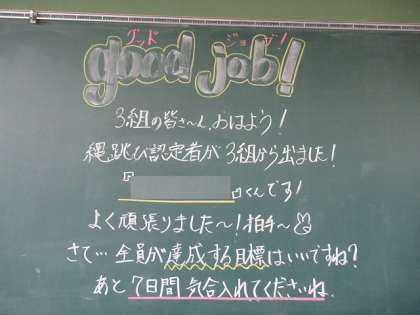 グッド ジョブ!
good job!
3組の皆さ~ん、おはよう!
縄跳び認定者が3組から出ました!
『 』くんです!
よく頑張りました~!拍手~
さて…全員が達成する目標はいいですね?
あと7日間気合入れてくださいね